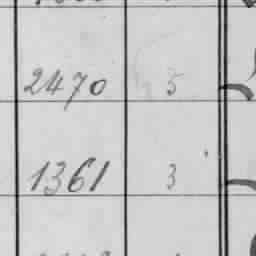 2470 5
1361 3